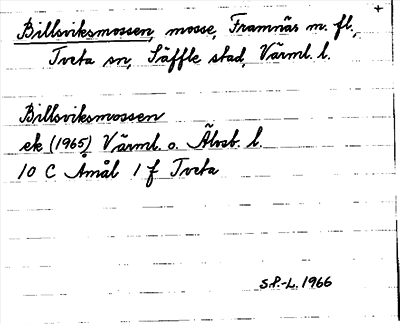 Billsviksmossen mosse, Framnäs m. fl.,
Tveta sn, Säffle stad, Värml. l.
Billsviksmossen
ek (1965) Värml. o. Älvsb. l.
10 C Åmål 1 f Tveta
S.P.-L. 1966